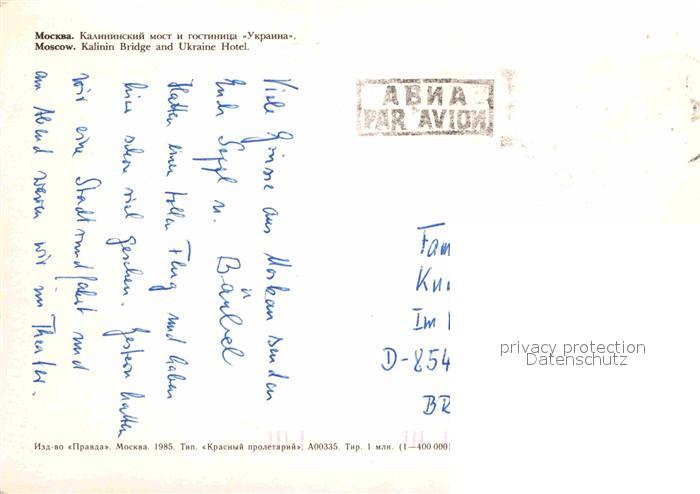 Москва. Калининский мост и гостиница «Украина».
Moscow. Kalinin Bridge and Ukraine Hotel.
АВИА
PAR AVION
Viele Grüsse aus Moskau senden
Euch Seppl u. Bärbel
Hatten einen tollen Flug und haben
hier schon viel gesehen. Gestern hatten
wir eine Stadtrundfahrt und
am Abend waren wir im Theater.
Fam
Im
D-854
BR
privacy protection
Datenschutz
Изд-во «Правда». Москва. 1985. Тип. «Красный пролетарий». А00335. Тир. 1 млн. (1—400 000)